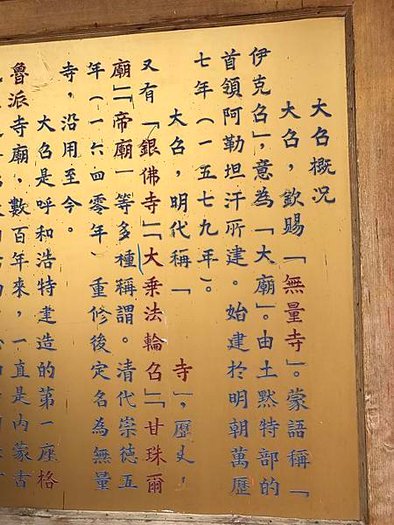 大召概况
大召，欽賜「無量寺」。蒙語稱「
伊克召」，意為「大廟」。由土默特部的
首領阿勒坦汗所建。始建於明朝萬歷
七年（一五七九年）。
大召，明代稱「寺」，歷史，
又有「銀佛寺」「大乘法輪召」「甘珠爾
廟」「帝廟」等多種稱謂。清代崇德五
年（一六四零年）重修後定名為無量
寺，沿用至今。
大召是呼和浩特建造的第一座格
魯派寺廟，數百年來，一直是内蒙古